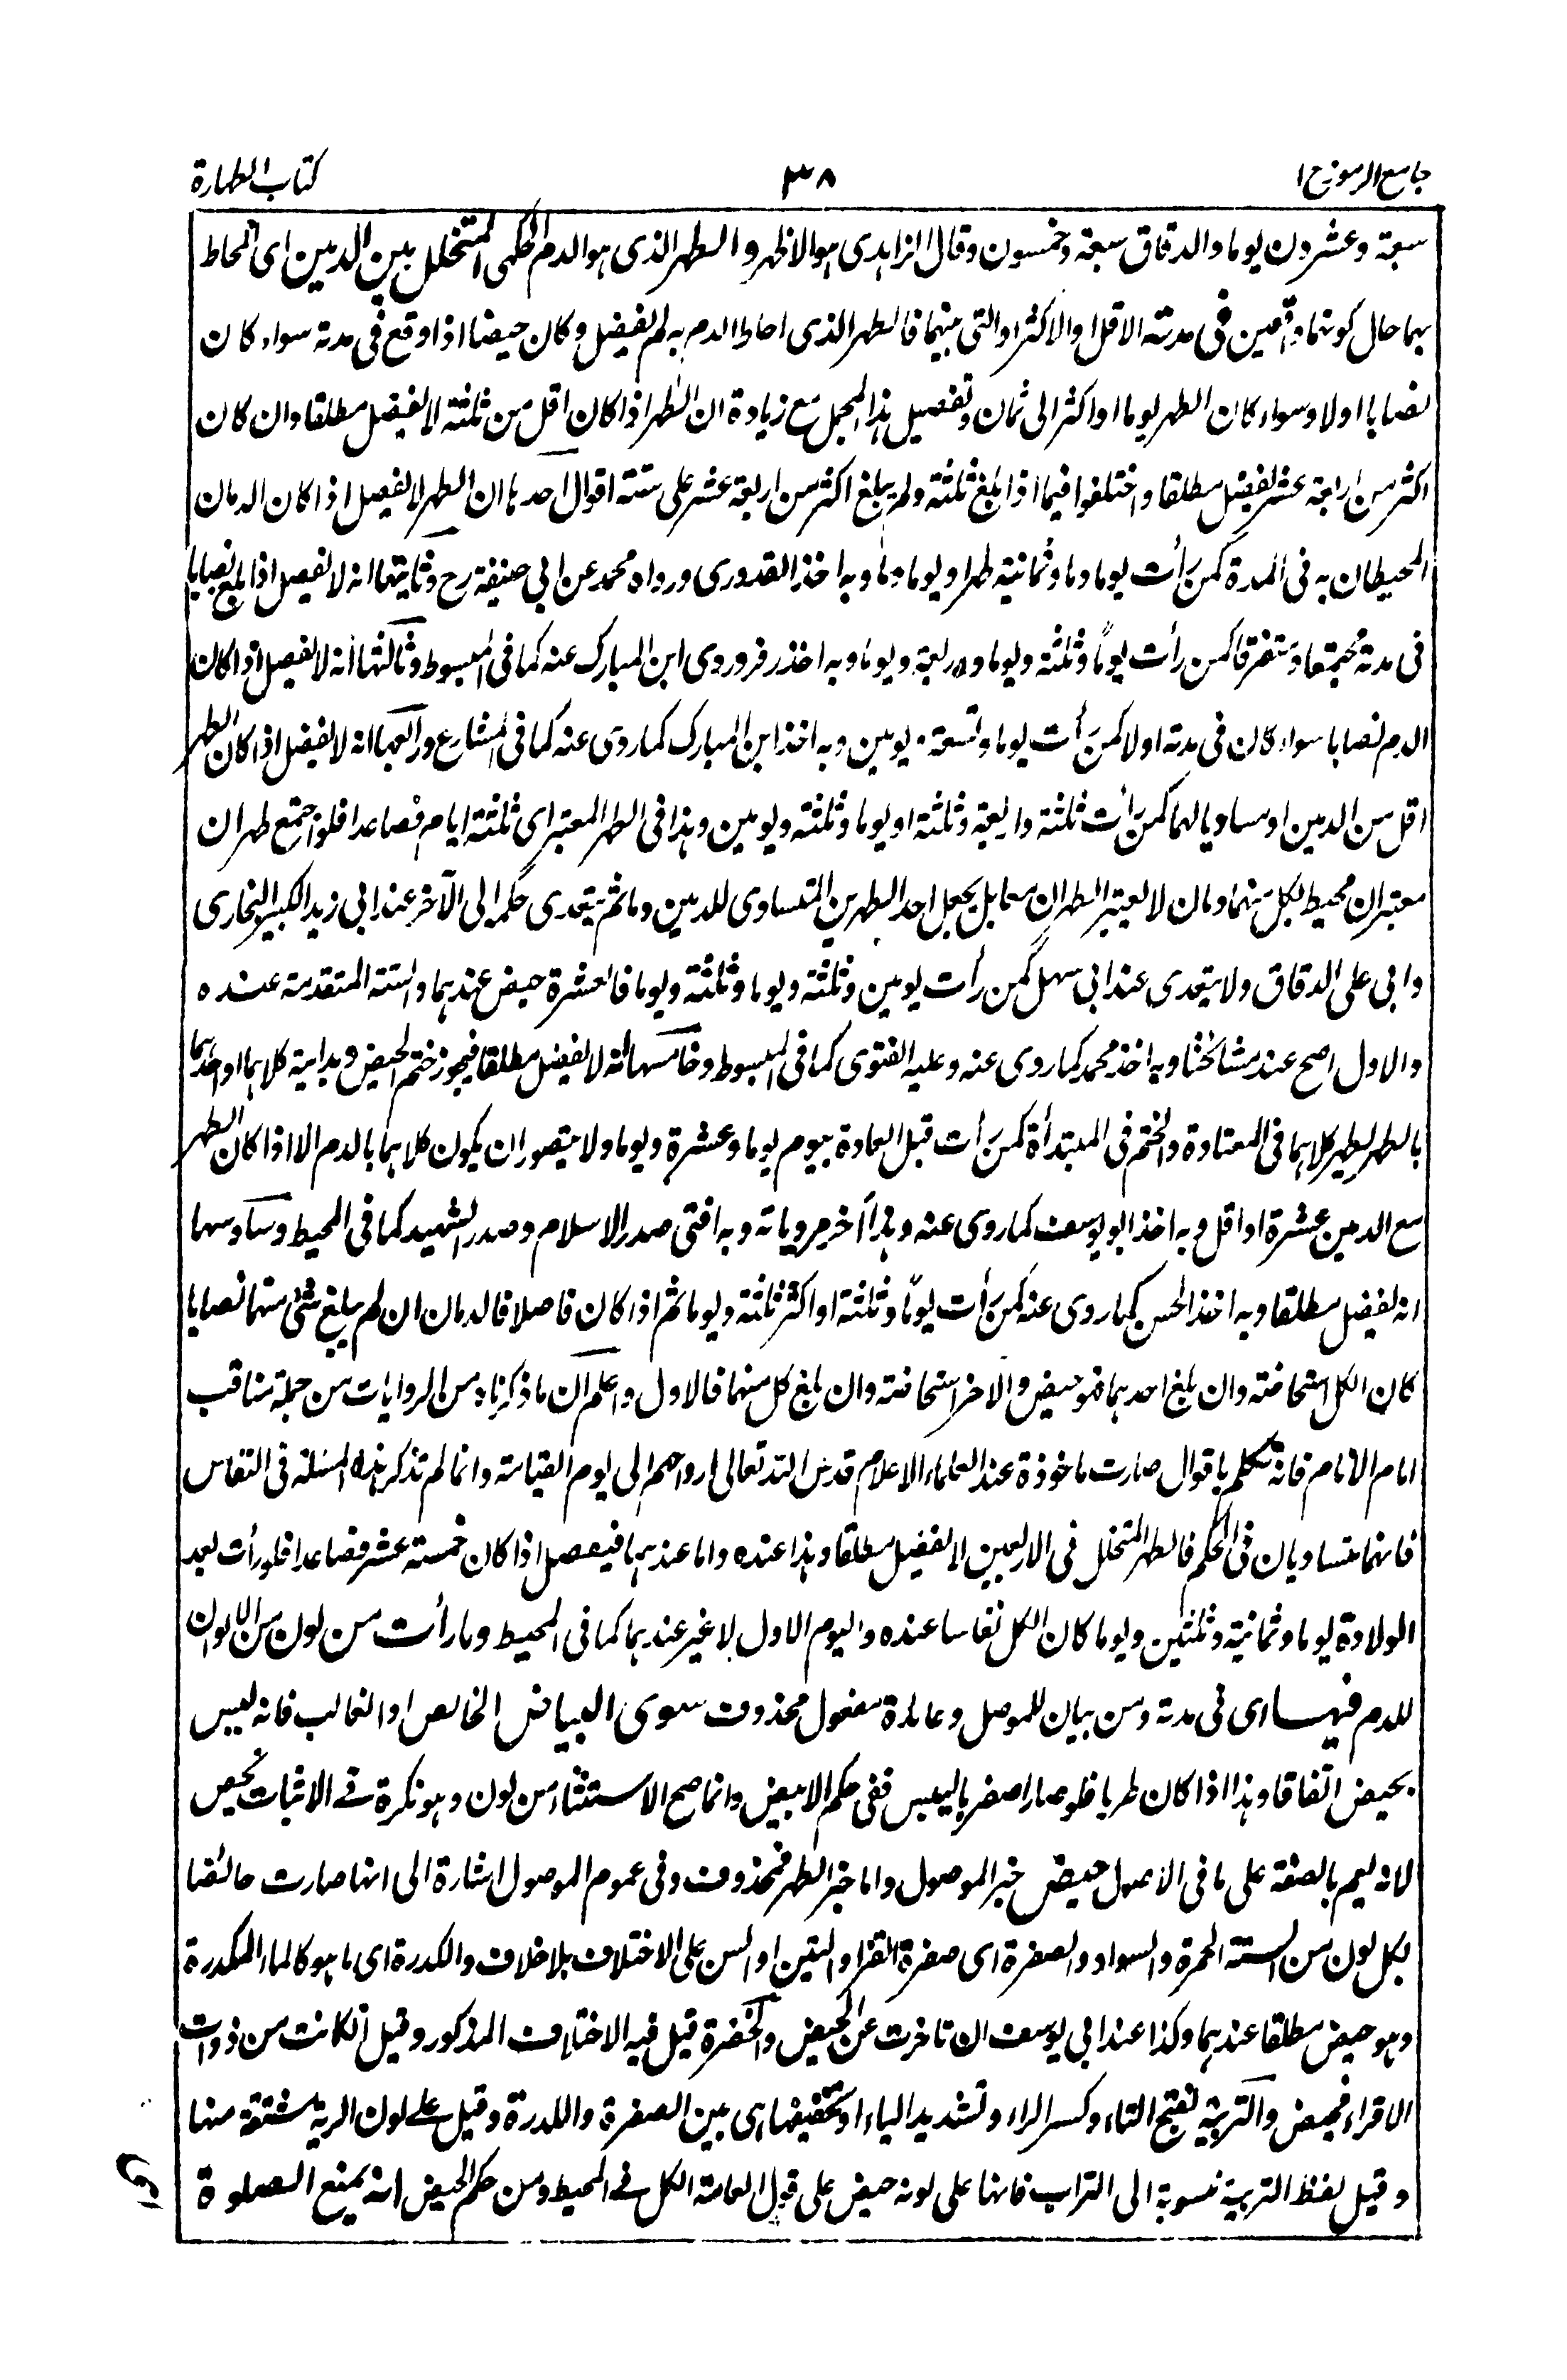 جامع الرموز ج ١
٣٨
كتاب الطهارة
سبعة وعشرون يوما والدقاق سبعة وخمسون وقال الزاهدى هو الاظهر والطهر الذى هو الدم الحكمى المتخلل بين الدمين اى المحاط
بهما حال كونهما واقعين فى مدته الاقل او الاكثر او التى بينهما فالطهر الذى احاط الدم به لم يفصل وكان حيضا اذا وقع فى مدته سواء كان
نصابا اولا وسواء كان الطهر يوما او اكثر الى ثمان وتفصيل هذا المجمل مع زيادة ان الطهر اذا كان اقل من ثلثة لا يفصل مطلقا وان كان
اكثر من اربعة عشر يفصل مطلقا واختلفوا فيما اذا بلغ ثلثة ولم يبلغ اكثر من اربعة عشر على ستة اقوال احدها ان الطهر لا يفصل اذا كان الدمان
المحيطان به فى المدة كمن رأت يوما دما وثمانية طهرا ويوما دما وبه اخذ القدورى ورواه محمد عن ابى حنيفة رح وثانيتها انه لا يفصل اذا بلغ نصابا
فى مدته مجتمعا ومتفرقا كمن رأت يوما وثلثة ويوما واربعة ويوما وبه اخذ زفر وروى ابن المبارك عنه كما فى المبسوط وثالثتها انه لا يفصل اذا كان
الدم نصابا سواء كان فى مدته اولا كمن رأت يوما وتسعة ويومين وبه اخذ ابن المبارك كما روى عنه كما فى المشارع ورابعها انه لا يفصل اذا كان الطهر
اقل من الدمين او مساويا لهما كمن رأت ثلثة واربعة وثلثة او يوما وثلثة ويومين وهذا فى الطهر المعتبر اى ثلثة ايام فصاعدا فلو اجتمع طهران
معتبران محيط لكل منهما دمان لا يعتبر الطهران معا بل يجعل احد الطهرين المتساوى للدمين دما ثم يتعدى حكمه الى الآخر عند ابى زيد الكبير البخارى
وابى على الدقاق ولا يتعدى عند ابى سهل كمن رأت يومين وثلثة ويوما وثلثة ويوما فالعشرة حيض عندهما والستة المتقدمة عنده
والاول اصح عند مشائخنا وبه اخذ محمد كما روى عنه وعليه الفتوى كما فى المبسوط وخامسها انه لا يفصل مطلقا فيجوز ختم الحيض وبدايته كلاهما او احدهما
بالطهر لطهر كلاهما فى المعتادة والختم فى المبتدأة كمن رأت قبل العادة بيوم يوما وعشرة ويوما ولا يتصور ان يكون كلاهما بالدم الا اذا كان الطهر
مع الدمين عشرة او اقل وبه اخذ ابو يوسف كما روى عنه وهذا آخر مروياته وبه افتى صدر الاسلام وصدر الشهيد كما فى المحيط وسادسها
انه يفصل مطلقا وبه اخذ الحسن كما روى عنه كمن رأت يوما وثلثة او اكثر ثلثة ويوما ثم اذا كان فاصلا فالدمان ان لم يبلغ شئ منهما نصابا
كان الكل استحاضة وان بلغ احدهما فهو حيض والاخر استحاضة وان بلغ كل منهما فالاول واعلم ان ما ذكرناه من الروايات من جملة مناقب
امام الانام فانه تكلم باقوال صارت ماخوذة عند العلماء الاعلام قدس الله تعالى ارواحهم الى يوم القيامة وانما لم تذكر هذه المسئلة فى النفاس
فانهما متساويان فى الحكم فالطهر المتخلل فى الاربعين لا يفصل مطلقا وهذا عنده واما عندهما فيفصل اذا كان خمسة عشر فصاعدا فلو رأت بعد
الولادة يوما وثمانية وثلثين ويوما كان الكل نفاسا عنده واليوم الاول لا غير عندهما كما فى المحيط وما رأت من لون من الالوان
للدم فيها اى فى مدته ومن بيان للموصل وعائده مفعول محذوف سوى البياض الخالص او الغالب فانه ليس
بحيض اتفاقا وهذا اذا كان طريا فلو صار اصفر باليبس ففى حكم الابيض وانما صح الاستثناء من لون وهو نكرة فى الاثبات يخص
لانه ليعم بالصفة على ما فى الاصول حيض خبر الموصول واما خبر الطهر فمحذوف وفى عموم الموصول اشارة الى انها صارت حائضا
بكل لون من الستة الحمرة والسواد والصفرة اى صفرة القز او التبن او السن على الاختلاف بلا خلاف والكدرة اى ما هو كالماء المكدرة
وهو حيض مطلقا عندهما وكذا عند ابى يوسف ان تاخرت عن الحيض والخضرة قيل فيه الاختلاف المذكور وقيل ان كانت من ذوات
الاقراء فحيض والتربية بفتح التاء وكسر الراء وتشديد الياء او تخفيفها هى بين الصفرة والكدرة وقيل على لون الرية مشتقة منها
وقيل لفظ التربية منسوبة الى التراب فانها على لونه حيض على قول العامة الكل فى المحيط ومن حكم الحيض انه يمنع الصلوة